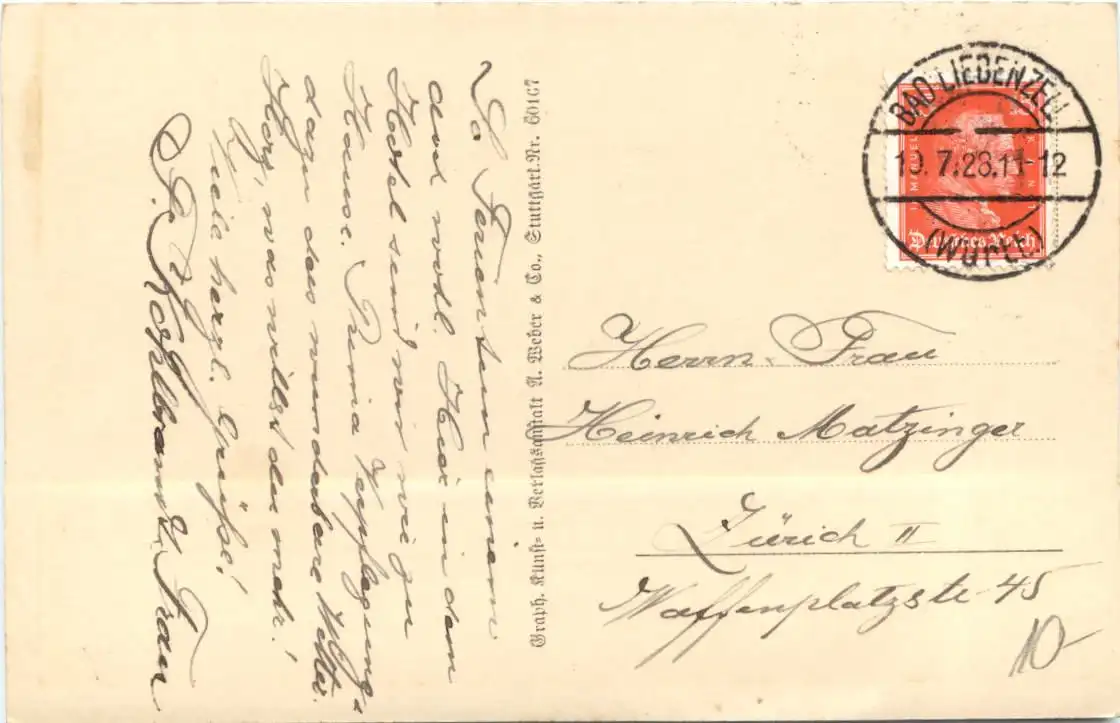 So Ferien tun einem
avd wohl. Hier in dem
Hotel sind wir wie zu
Hause. Prima Verpflegung,
dazu das wunderbare Wetter.
Herz, was willst du mehr!
Viele herzl. Grüße!
Kohlbrandt. Frau
Graph. Kunst- u. Verlagsanstalt A. Weber & Co., Stuttgart. Nr. 60167
BAD LIEBENZELL
19.7.28.11-12
(WÜRTT)
IMMANUEL KANT
Deutsches Reich
Herrn. Frau
Heinrich Matzinger
Zürich II
Waffenplatzstr. 45
10-